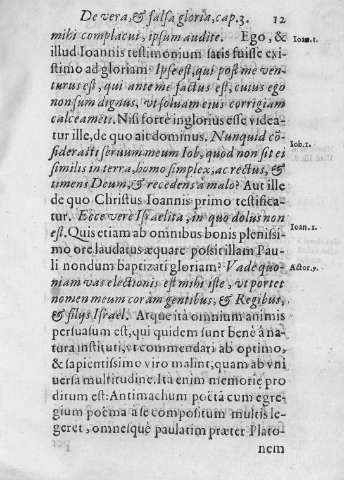 De vera, & falsa gloria, cap. 3. 12
mihi complacui, ipsum audite. Ego, & Ioan. 1.
illud Ioannis testimonium satis fuisse exi
stimo ad gloriam: Ipse est, qui post me ven-
turus est, qui ante me factus est, cuius ego
non sum dignus, vt soluam eius corrigiam
calceameti. Nisi forte inglorius esse videa
tur ille, de quo ait dominus. Nunquid cō
siderasti seruum meum Iob, quod non sit ei Iob. 1.
similis in terra, homo simplex, ac rectus, &
timens Deum, & recedens a malo? Aut ille
de quo Christus Ioannis primo testifica-
tur. Ecce vere Israelita, in quo dolus non
est. Quis etiam ab omnibus bonis plenissi- Ioan. 1.
mo ore laudatus æquare possit illam Pau-
li nondum baptizati gloriam? Vade quo- Actor. 9.
niam vas electionis est mihi iste, vt portet
nomen meum coram gentibus, & Regibus,
& filijs Israel. Atque ita omnium animis
persuasum est, qui quidem sunt bene a na-
tura instituti, vt commendari ab optimo,
& sapientissimo viro malint, quam ab vni
uersa multitudine. Ita enim memoriæ pro
ditum est: Antimachum poëtā cum egre-
gium poëma a se compositum multis le-
geret, omnesque paulatim præter Plato-
nem